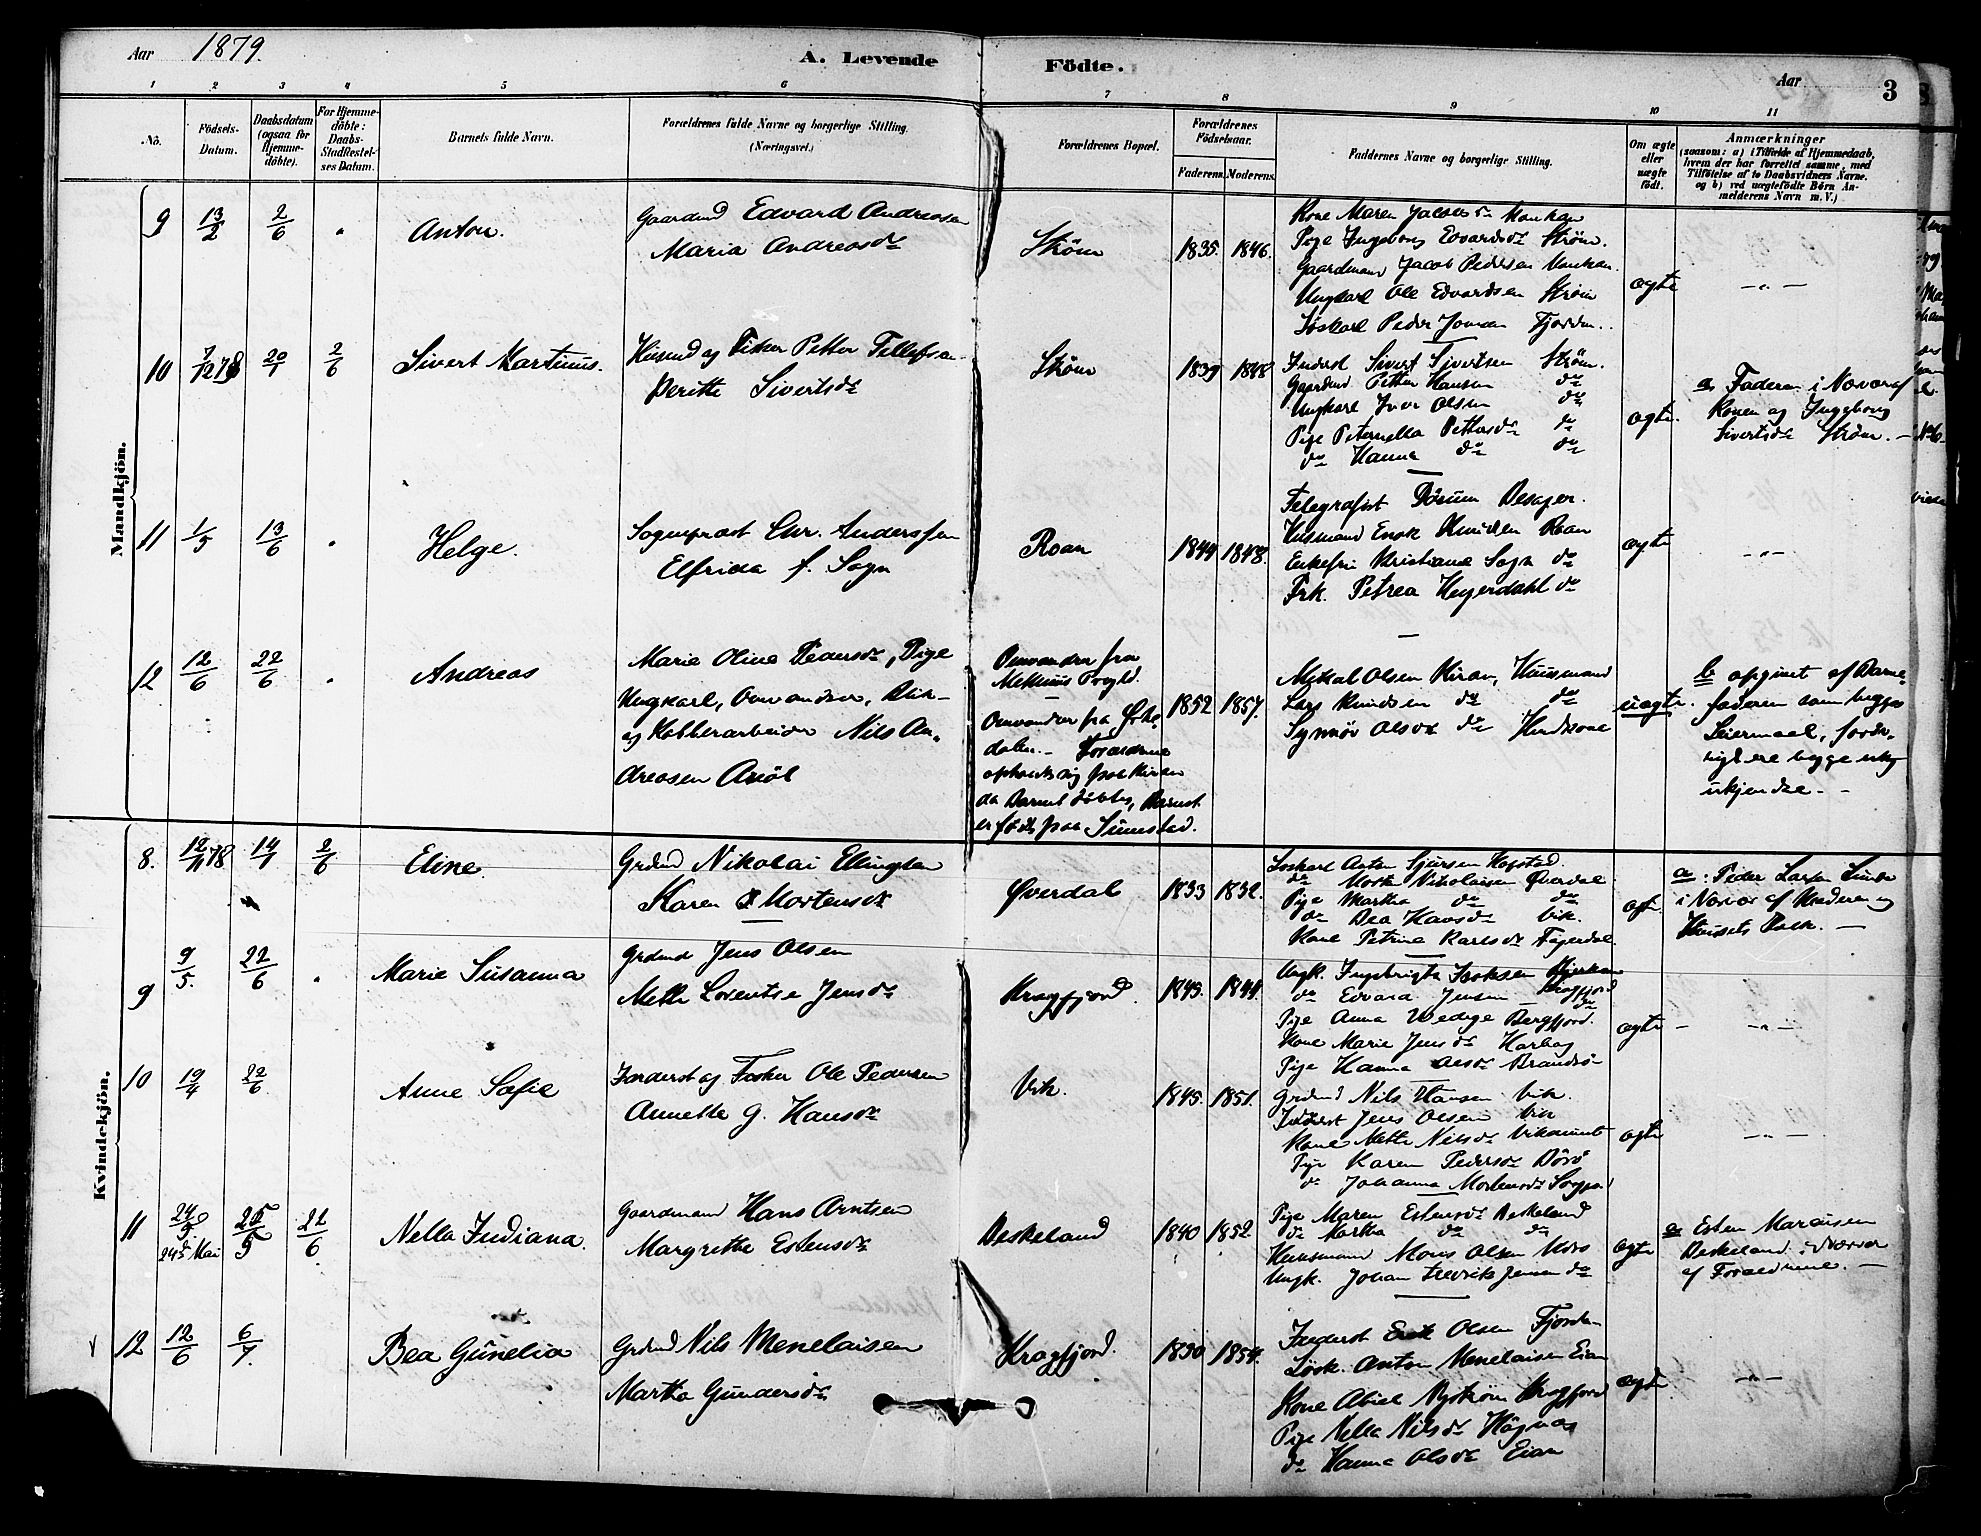 Aar 1879.
A. Levende Födte.
Aar 3
1 2 3 4 5 6 7 8 9 10 11
No.
Födsels-Datum.
Daabsdatum (ogsaa for Hjemme-döbte).
For Hjemme-döbte: Daabs-Stadfæstel-ses Datum.
Barnets fulde Navn.
Forældrenes fulde Navne og borgerlige Stilling. (Næringsvei.)
Forældrenes Bopæl.
Forældrenes Födselsaar.
Faderens. Moderens.
Faddernes Navne og borgerlige Stilling.
Om ægte eller uægte födt.
Anmærkninger
(saasom: a) i Tilfælde af Hjemmedaab, hvem der har forrettet samme, med Tilföielse af to Daabsvidners Navne, og b) ved uægtefödte Börn Anmelderens Navn m.V.)
Mandkjön.
9 13/2 2/6 " Anton.
Gaardmd Edvard Andreasen
Maria Andreasdr
Strøm 1835. 1846.
Kone Maren Jacobsdr
Pige Ingeborg Edvardsdr Strøm.
Gaardmand Jacob Pedersen
Ungkarl Ole Edvardsen Strøm
Løskarl Peder Jonsen Fjorden.
ægte —"—
10 7/12 78 20/1 2/6 Sivert Martinus.
Husmd og Fisker Petter Tellefsen
Peritte Sivertsdr
Strøm 1839 1848.
Inderst Sivert Sivertsen Strøm.
Gaardmd Petter Hansen do
Ungkarl Iver Olsen do
Pige Peternella Pettersdr do
do Hanna do do
ægte.
a. Faderen i Nærvær af
Konen og Ingeborg
Sivertsdr Strøm. —
11 1/5 13/6 " Helge.
Sogneprest Chr. Anderssen
Elfrida f. Sogn
Roan 1844 1848.
Telegrafist Besager.
Husmand Enok Knudsen Roan
Enkefru Kristiane Sogn do
Frk. Petrea Heyerdahl do
ægte —"—
12 12/6 22/6 " Andreas
Marie Oline Pedersdr, Pige
Ungkarl, Omvandrer, Blik-
og Kobberarbeider Nils An-
dreasen Asiöl
Omvandrer fra
Melhuus Prgld.
Omvandrer fra Ørke-
dalen. – Forældrene
opholdt sig paa Kiran
da Barnet döbtes, Barnet
er födt paa Sumstad.
1852 1857.
Mikal Olsen Kiran, Huusmand
Lars Knudsen do do
Synnöv Olsdr do Huskone
uægte.
b opgivet af Barne-
faderen som begges
Leiermaal, forøv-
rigt ere begge
ukjendte. –
Kvindekjön.
8. 12/11 78 14/1 2/6 Eline.
Grdmd Nikolai Ellingsen
Karen Mortensdr
Øverdal 1833 1832.
Løskarl Anton Sjursen Hofstad.
do Morten Nikolaisen Øverdal
Pige Martha do do
do Bea Hansdr Vik.
Kone Petrine Karlsdr Fagerdal.
ægte.
a: Peder Larsen
i Nærvær af Moderen og
Husets Folk. —
9 9/5. 22/6 " Marie Susanna
Grdmd Jens Olsen
Mette Lorentse Jensdr
Kragfjord. 1843. 1844.
Ungk. Ingebrigt Isaksen
do Edvard Jensen Kragfjord
Pige Anna Wedege Bergfjord.
Kone Marie Jensdr Harbag
Pige Hanna Olsdr Brandsö
ægte – —"—
10 19/4 22/6 Anne Sofie
Inderst og Fisker Ole Pedersen
Annette G. Hansdr
Vik. 1845. 1851.
Grdmd Nils Hansen Vik.
Inderst Jens Olsen Vik
Kone Mette Nilsdr
Pige Karen Pedersdr
do Johanna Mortensdr
ægte —"—
11 24/5 24de Mai 25/5 22/6 Nella Indiana.
Gaardmand Hans Arntsen
Margrethe Estensdr
Beskeland 1840 1852
Pige Maren Estensdr Beskeland
do Martha do do
Huusmand Mons Olsen Mørs
Ungk. Johan Fredrik Jensen do
ægte
a Esten
Beskeland i Nærvær
af Forældrene. —
V 12 12/6 6/7. Bea Gunelia
Grdmd Nils Menelaisen
Martha Gundersdr
Kragfjord. 1850 1854.
Inderst Erik Olsen Fjorden
Løsk. Anton Menelaisen Eian
Kone Abiel Nyström Kragfjord
Pige Nella Nilsdr
do Hanna Olsdr Eian
ægte —"—